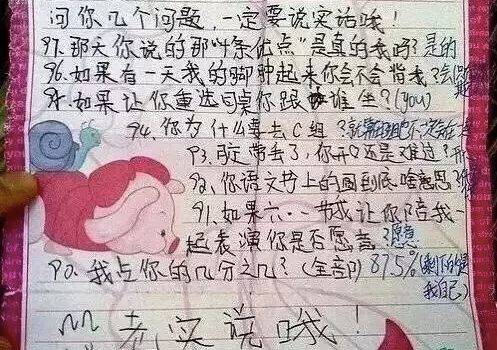 问你几个问题,一定要说实话哦!
97.那天你说的那"十条优点"是真的我吗?是的
96.如果有一天我的脚肿起来你会不会背我?会
95.如果让你重选同桌你跟谁坐?(you)
94.你为什么要去C组?
93.我走了,你开心还是难过?
92.你语文书上的画到底啥意思?
91.如果六·一节城让你陪我一
起表演你是否愿意?愿意
90.我占你的几分之几?(全部)87.5%(剩下的是
我自己)
老实说哦!